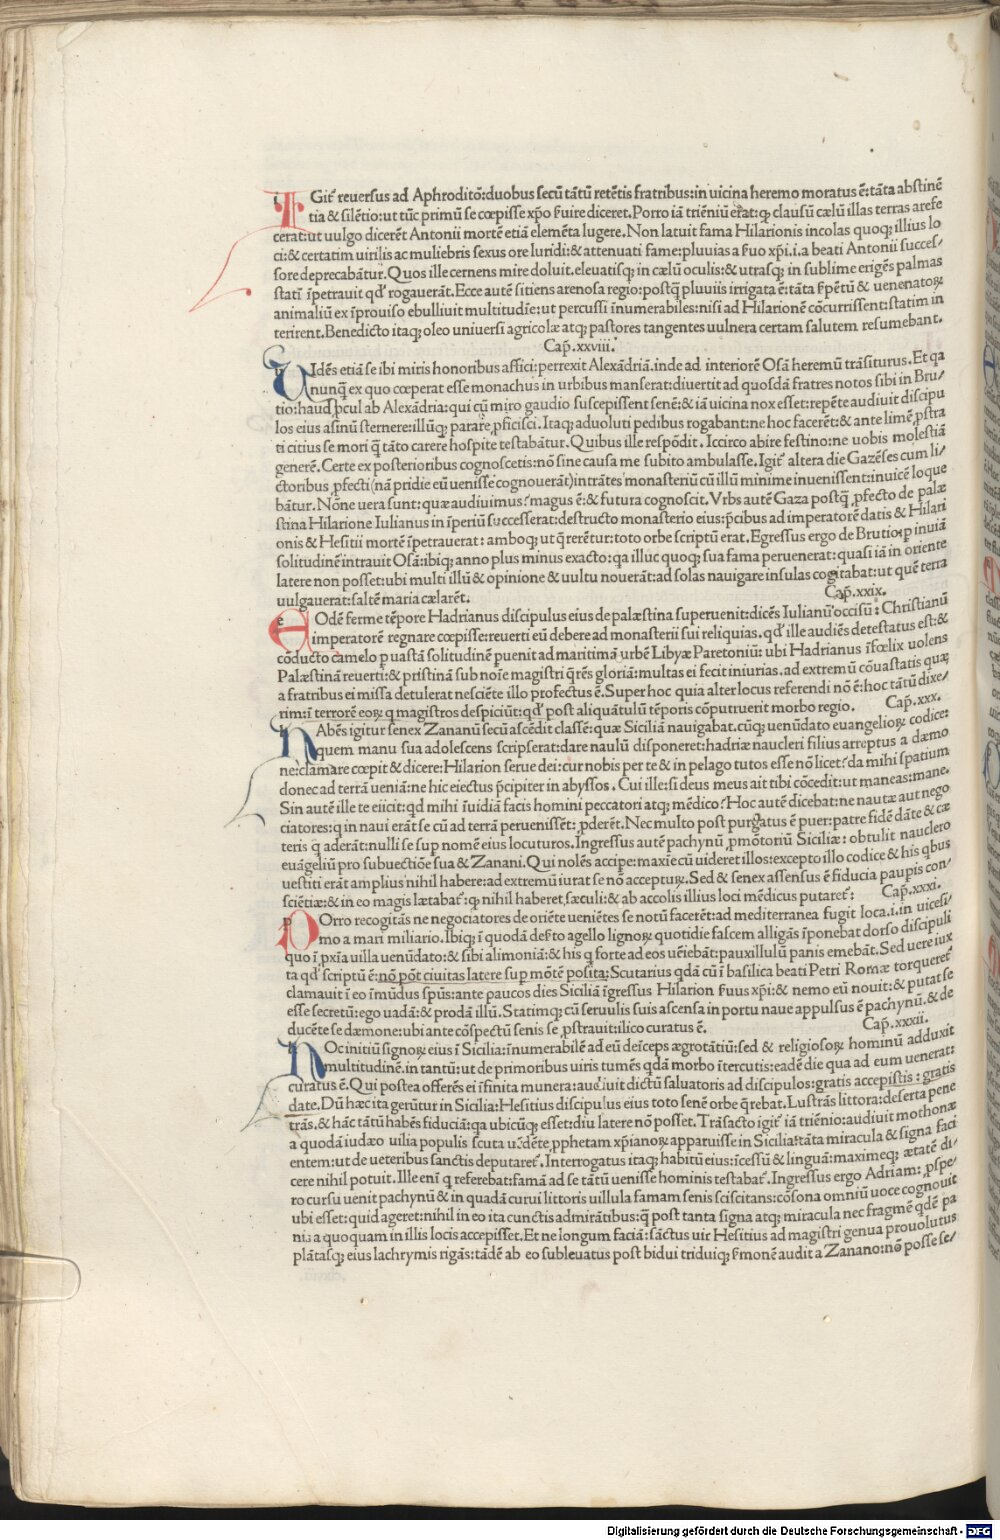 IGit᷑ reuersus ad Aphroditō:duobus secū tātū retētis fratribus:in uicina heremo moratus ē:tāta abstinē
tia & silētio:ut tūc primū se cœpisse xp̄o ẜuire diceret.Porro iā triēniū erat:ꝙ clausū cælū illas terras arefe
cerat:ut uulgo dicerēt Antonii mortē etiā elemēta lugere.Non latuit fama Hilarionis incolas quoqꝫ illius lo
ci:& certatim uirilis ac muliebris sexus ore luridi:& attenuati fame:pluuias a ẜuo xp̄i.i.a beati Antonii succes/
sore deprecabātur.Quos ille cernens mire doluit.eleuatisqꝫ in cælū oculis:& utrasqꝫ in sublime erigēs palmas
stati᷑ īpetrauit qđ rogauerāt.Ecce autē sitiens arenosa regio:postq̄ pluuiis irrigata ē:tāta ẜpētū & uenenatoꝝ
animaliū ex īprouiso ebulliuit multitudīe:ut percussi īnumerabiles:nisi ad Hilarionē cōcurrissent:statim in
terirent.Benedicto itaqꝫ oleo uniuersi agricolæ atqꝫ pastores tangentes uulnera certam salutem resumebant.
Cap̄.xxviii.
UIdēs etiā se ibi miris honoribus affici:perrexit Alexādriā.inde ad interiorē Osā heremū trāsiturus.Et qa
nunq̄ ex quo cœperat esse monachus in urbibus manserat:diuertit ad quosdā fratres notos sibi in Bru/
tio:haud ꝓcul ab Alexādria:qui cū miro gaudio suscepissent senē:& iā uicina nox esset:repēte audiuit discipu
los eius asinū sternere:illūqꝫ parare ꝓficisci.Itaqꝫ aduoluti pedibus rogabant:ne hoc facerēt:& ante limē ꝓstra
ti citius se mori q̄ tāto carere hospite testabātur.Quibus ille respōdit.Iccirco abire festino:ne uobis molestiā
generē.Certe ex posterioribus cognoscetis:nō sine causa me subito ambulasse.Igit᷑ altera die Gazēses cum li/
ctoribus ꝓfecti(nā pridie eū uenisse cognouerāt)intrātes monasteriū cū illū minime inuenissent:inuicē loque
bātur.Nōne uera sunt:quæ audiuimus?magus ē:& futura cognoscit.Vrbs autē Gaza postq̄ ꝓfecto de palæ
stina Hilarione Iulianus in īperiū successerat:destructo monasterio eius:p̄cibus ad imperatorē datis & Hilari
onis & Hesitii mortē īpetrauerat: amboqꝫ ut q̄rerētur:toto orbe scriptū erat.Egressus ergo de Brutio:ꝑ inuiā
solitudinē intrauit Osā:ibiqꝫ anno plus minus exacto:qa illuc quoqꝫ sua fama peruenerat:quasi iā in oriente
latere non posset:ubi multi illū & opinione & uultu nouerāt:ad solas nauigare insulas cogitabat:ut quē terra
uulgauerat:saltē maria cælarēt. Cap̄.xxix.
EOdē ferme tēpore Hadrianus discipulus eius de palæstina superuenit:dicēs Iulianū occisū: Christianū
imperatorē regnare cœpisse:reuerti eū debere ad monasterii sui reliquias.qđ ille audiēs detestatus est:&
cōducto camelo ꝑ uastā solitudinē puenit ad maritimā urbē Libyæ Paretoniū: ubi Hadrianus īfœlix uolens
Palæstinā reuerti:& pristinā sub noīe magistri q̄rēs gloriā:multas ei fecit iniurias.ad extremū cōuastatis quæ
a fratribus ei missa detulerat nesciēte illo profectus ē.Super hoc quia alter locus referendi nō ē:hoc tātū dixe/
rim:ī terrorē eoꝝ q magistros despiciūt:qđ post aliquātulū tēporis cōputruerit morbo regio. Cap̄.xxx.
HAbēs igitur senex Zananū secū ascēdit classē:quæ Siciliā nauigabat.cūqꝫ uenūdato euangelioꝝ codice:
quem manu sua adolescens scripserat:dare naulū disponeret:hadriæ naucleri filius arreptus a dæmo
ne:clamare cœpit & dicere:Hilarion serue dei:cur nobis per te & in pelago tutos esse nō licet?da mihi spatium
donec ad terrā ueniā:ne hic eiectus p̄cipiter in abyssos.Cui ille:si deus meus ait tibi cōcedit:ut maneas:mane.
Sin autē ille te eiicit:qđ mihi īuidiā facis homini peccatori atqꝫ mēdico?Hoc autē dicebat:ne nautæ aut nego
ciatores:q in naui erāt se cū ad terrā peruenissēt:ꝓderēt.Nec multo post purgatus ē puer:patre fidē dāte & cæ
teris q aderāt:nulli se sup nomē eius locuturos.Ingressus autē pachynū ꝓmōtoriū Siciliæ: obtulit nauclero
euāgeliū pro subuectiōe sua & Zanani.Qui nolēs accipe:maxīe cū uideret illos:excepto illo codice & his qbus
uestiti erāt amplius nihil habere:ad extremū iurat se nō acceptuꝝ.Sed & senex assensus ē fiducia paupis con/
sciētiæ:& in eo magis lætabat᷑:ꝙ nihil haberet sæculi:& ab accolis illius loci mēdicus putaret᷑: Cap̄.xxxi.
POrro recogitās ne negociatores de oriēte ueniētes se notū facerēt:ad mediterranea fugit loca.i.in uicesi/
mo a mari miliario.Ibiqꝫ ī quodā deẜto agello lignoꝝ quotidie fascem alligās īponebat dorso discipuli
quo ī pxīa uilla uenūdato:& sibi alimoniā:& his q forte ad eos uēiebāt:pauxillulū panis emebāt.Sed uere iux
ta qđ scriptū ē:nō pōt ciuitas latere sup mōtē posita:Scutarius qdā cū ī basilica beati Petri Romæ torqueret᷑
clamauit ī eo īmūdus spūs:ante paucos dies Siciliā īgressus Hilarion ẜuus xp̄i:& nemo eū nouit:& putat se
esse secretū:ego uadā:& prodā illū.Statimqꝫ cū seruulis suis ascensa in portu naue appulsus ē pachynū.& de
ducēte se dæmone:ubi ante cōspectū senis se ꝓstrauit:ilico curatus ē. Cap̄.xxxii.
HOc initiū signoꝝ eius ī Sicilia:īnumerabilē ad eū deīceps ægrotātiū:sed & religiosoꝝ hominū adduxit
multitudinē.in tantū:ut de primoribus uiris tumēs qdā morbo ītercutis:eadē die qua ad eum uenerat:
curatus ē.Qui postea offerēs ei īfinita munera:audiuit dictū saluatoris ad discipulos:gratis accepistis:gratis
date.Dū hæc ita gerūtur in Sicilia:Hesitius discipulus eius toto senē orbe q̄rebat.Lustrās littora:deserta pene
trās.& hāc tātū habēs fiduciā:qa ubicūqꝫ esset:diu latere nō posset.Trāsacto igit᷑ iā triēnio:audiuit mothonæ
a quodā iudæo uilia populis scuta uēdēte,ꝓphetam xp̄ianoꝝ apparuisse in Sicilia:tāta miracula & signa faci
entem:ut de ueteribus sanctis deputaret᷑.Interrogatus itaqꝫ habitū eius:īcessū & linguā:maximeqꝫ ætatē di/
cere nihil potuit.Ille enī q referebat:famā ad se tātū uenisse hominis testabat᷑.Ingressus ergo Adriam: ꝓspe/
ro cursu uenit pachynū & in quadā curui littoris uillula famam senis sciscitans:cōsona omniū uoce cognouit
ubi esset:quid ageret:nihil in eo ita cunctis admirātibus:q̄ post tanta signa atqꝫ miracula nec fragmē qdē pa
nis a quoquam in illis locis accepisset.Et ne longum faciā:sāctus uir Hesitius ad magistri genua prouolutus
plātasqꝫ eius lachrymis rigās:tādē ab eo subleuatus post bidui triduiqꝫ ẜmonē audit a Zanano:nō posse se/
Digitalisierung gefördert durch die Deutsche Forschungsgemeinschaft - DFG